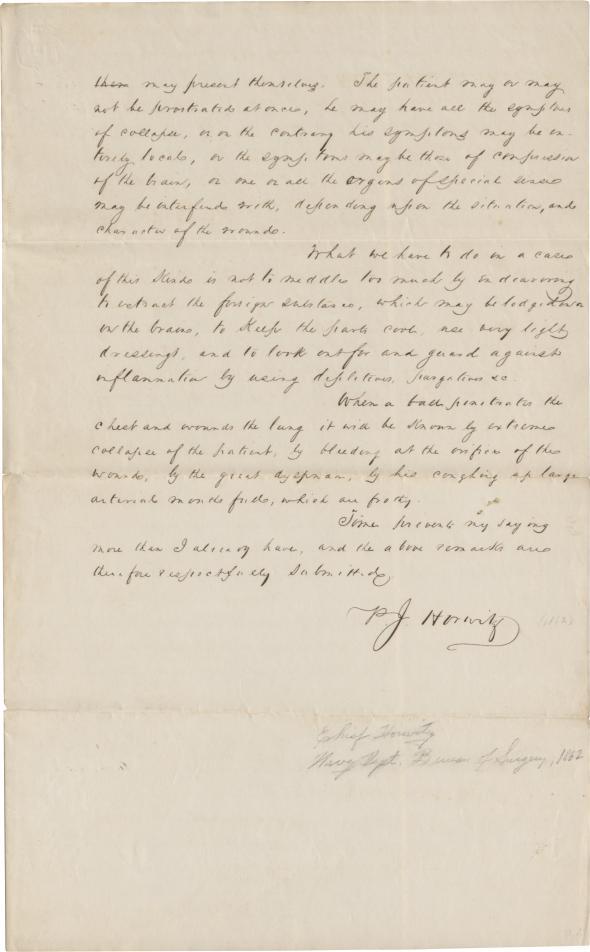 them may present themselves. The patient may or may
not be prostrated at once, he may have all the symptoms
of collapse, or on the contrary his symptoms may be en-
tirely local, or the symptoms may be those of compression
of the brain, or one or all the organs of special sense
may be interfered with, depending upon the situation, and
character of the wounds.
What we have to do in a case
of this kind is not to meddle too much by endeavoring
to extract the foreign substance, which may be lodged
in the brain, to keep the parts cool, use very light
dressings, and to look out for and guard against
inflammation by using depletives, purgatives &c.
When a ball penetrates the
chest and wounds the lung it will be known by extreme
collapse of the patient, by bleeding at the orifice of the
wound, by the great dyspnœa, by his coughing up large
arterial mouthfuls, which are frothy.
Time prevents my saying
more than I already have, and the above remarks are
therefore respectfully submitted,
P J Horwitz
Chief Horwitz
Navy Dept. Bureau of Surgery, 1862